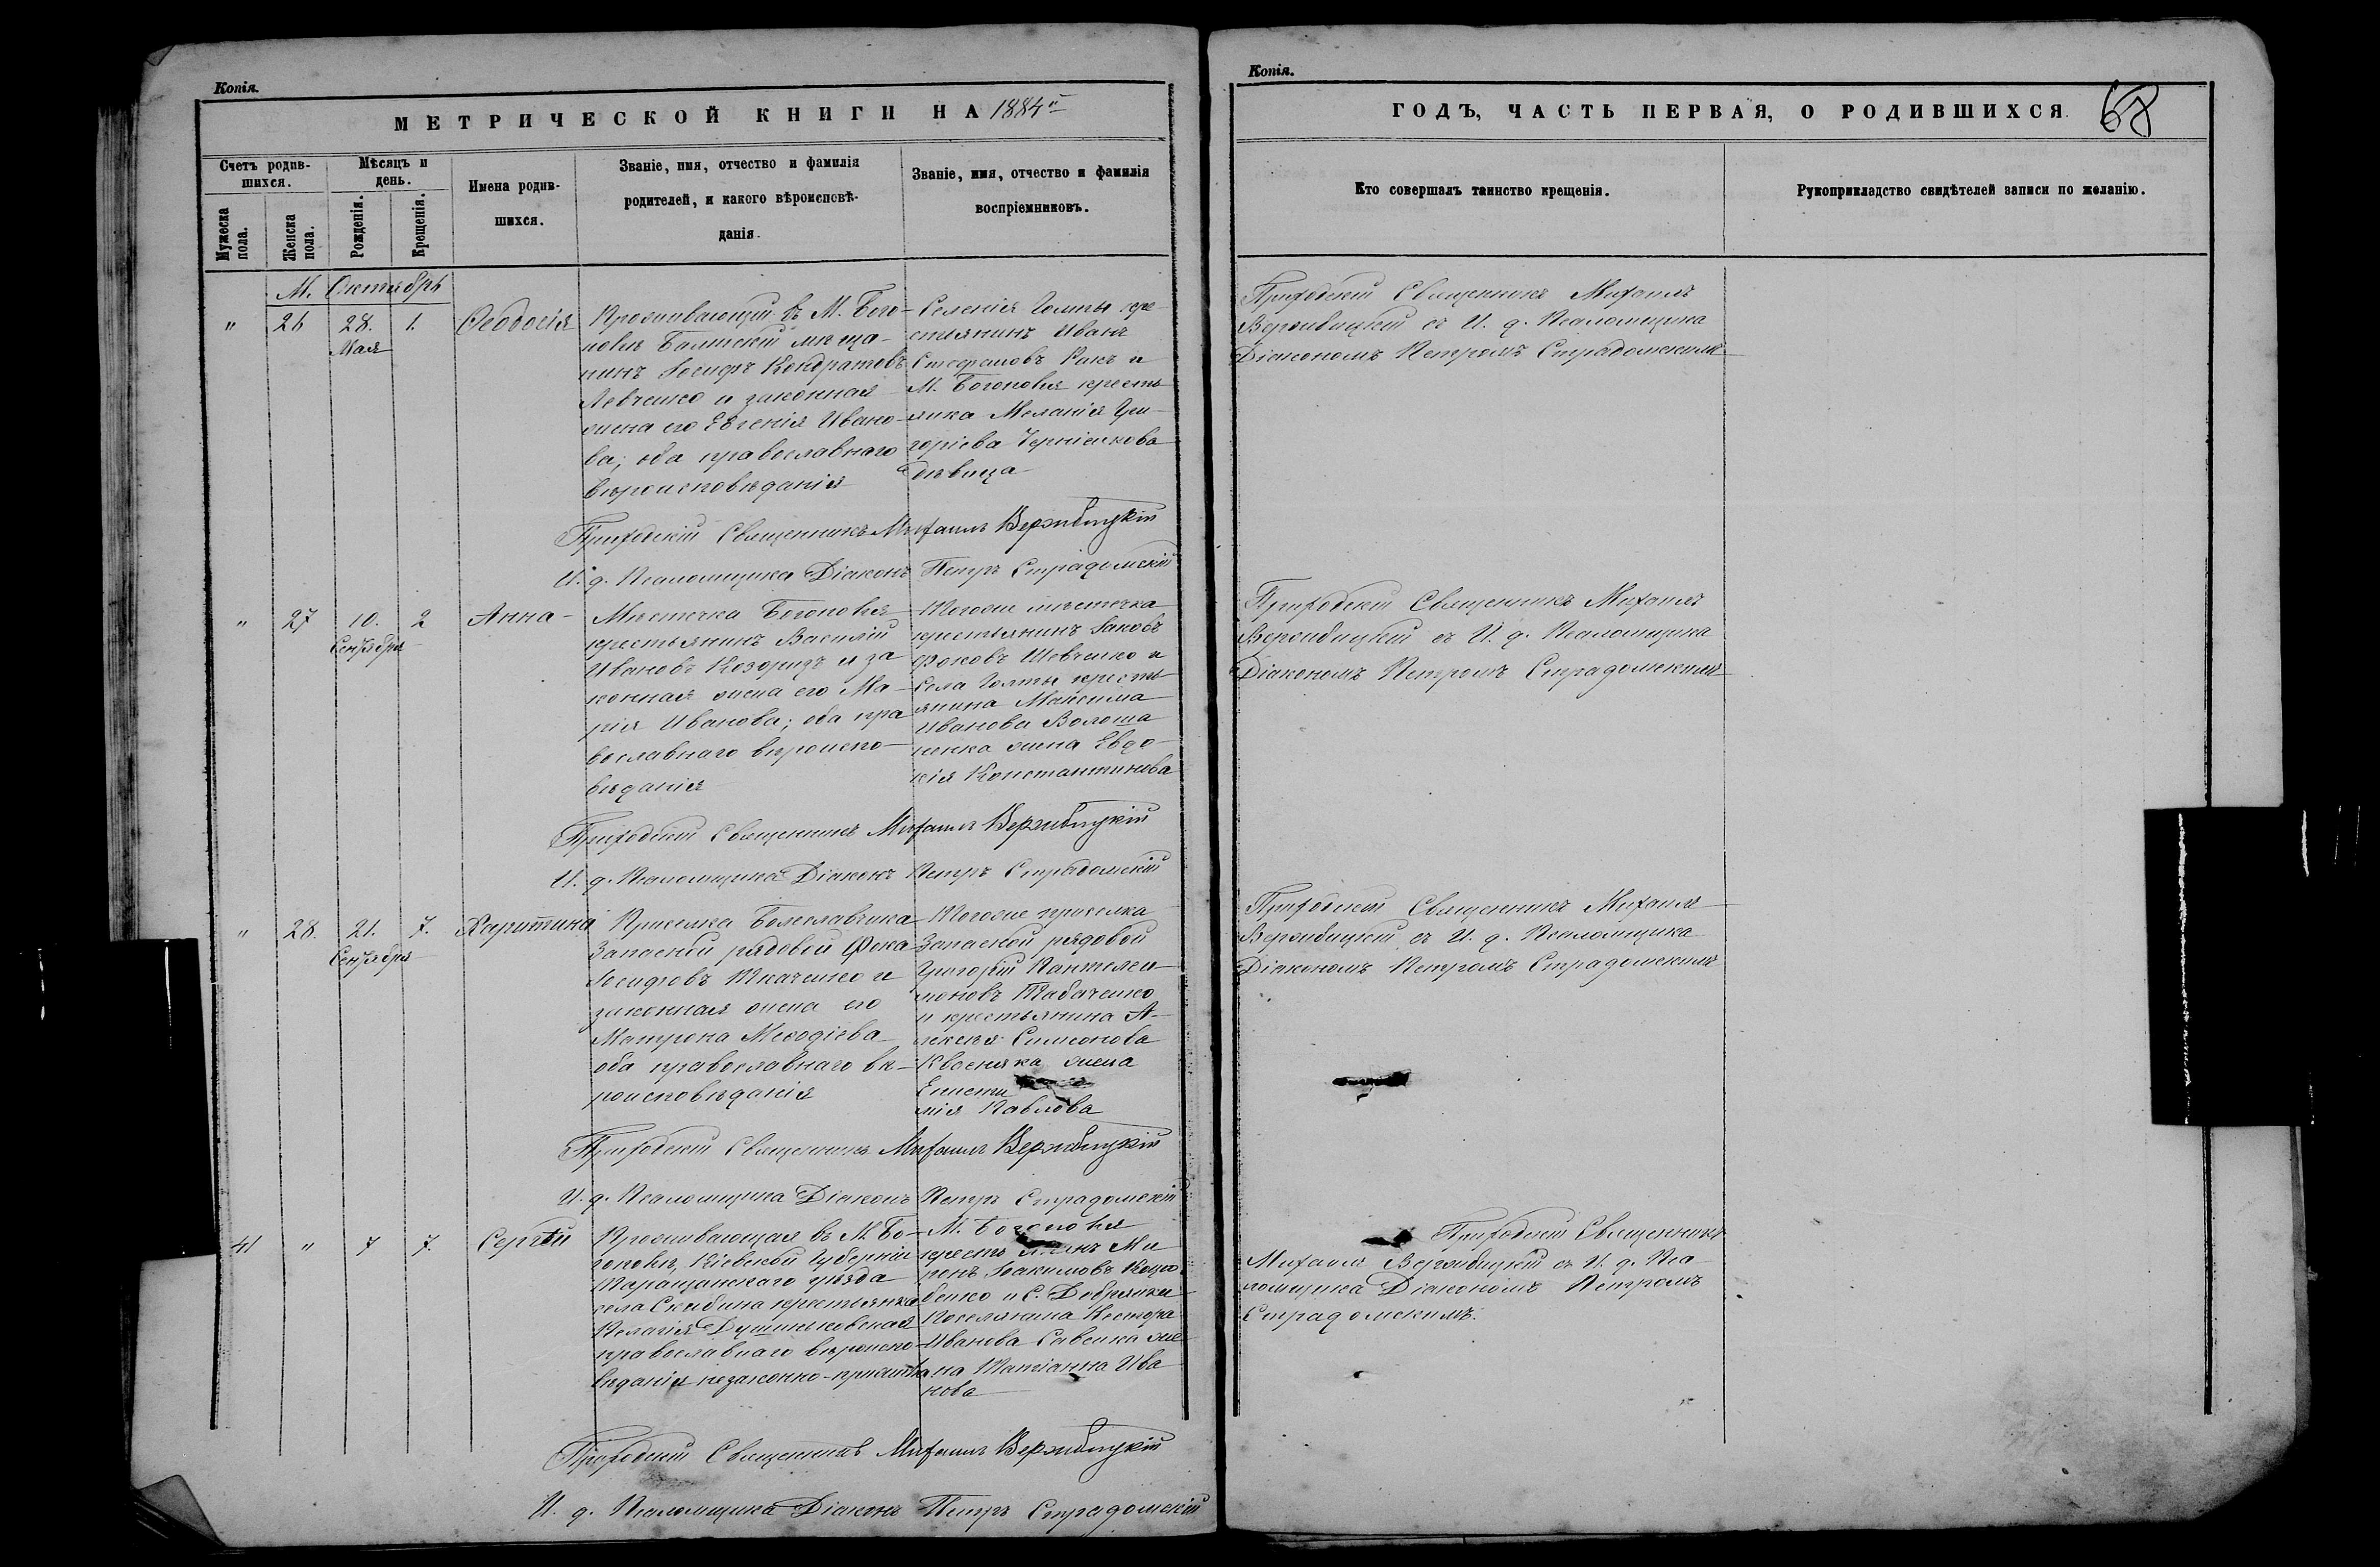 Копія.
МЕТРИЧЕСКОЙ КНИГИ НА 1884й
Счетъ родив-
шихся.
Мѣсяцъ и
день.
Мужеска
пола.
Женска
пола.
Рожденія.
Крещенія.
Имена родив-
шихся.
Званіе, имя, отчество и фамилія
родителей, и какого вѣроисповѣ-
данія.
Званіе, имя, отчество и фамилія
воспріемниковъ.
М. Октябрь
" 26 28. 1.
Мая
Ѳеодосія
Проживающій въ М. Бого-
полѣ Балтскій мѣща-
нинъ Іосифъ Кондратовъ
Левченко и законная
жена его Евгенія Ивано-
ва; оба православнаго
вѣроисповѣданія
Селенія Голты кре-
стьянинъ Иванъ
Стефановъ Ракъ и
М. Богополя кресть
янка Меланія Гри-
горіева
дѣвица
Приходскій Священникъ Михаилъ Вержбицкій
И. д. Псаломщика Діаконъ Петръ Страдомскій
" 27 10. 2
Сентября
Анна
Мѣстечка Богополя
крестьянинъ Василій
Ивановъ Козоризъ и за
конная жена его Ма-
рія Иванова; оба пра
вославнаго вѣроиспо-
вѣданія
Тогоже мѣстечка
крестьянинъ Іаковъ
Фоковъ Шевченко и
Села Голты кресть
янина Максима
Иванова Волоша
ненка жена Евдо-
кія Константинова
Приходскій Священникъ Михаилъ Вержбицкій
И. д. Псаломщика Діаконъ Петръ Страдомскій
" 28. 21. 7.
Сентября
Харитина
Приселка Болеславчика
Запасній рядовой Фока
Іосифовъ Ткаченко и
законная жена его
Матрона Меѳодіева
оба православнаго вѣ-
роисповѣданія
Тогоже приселка
Запасной рядовой
Григорій Пантелеи-
моновъ Табаченко
и крестьянина А-
лексѣя Симеонова
Квосняка жена
Еписти
мія Павлова
Приходскій Священникъ Михаилъ Вержбицкій
И. д. Псаломщика Діаконъ Петръ Страдомскій
41 " 7 7.
Сергѣй
Проживающая въ М. Бо-
гополѣ, Кіевской Губерніи
Таращанскаго уѣзда
села Скибина крестьянка
Пелагія
православнаго вѣроиспо-
вѣданія незаконно-прижитъ
М. Богополя
крестьянинъ Ми
ронъ Іоакимовъ Коцю
бенко и С. Добрянки
Поселянина Нестора
Иванова Савенка же-
на Татіанна Ива
нова
Приходскій Священникъ Михаилъ Вержбицкій
И. д. Псаломщика Діаконъ Петръ Страдомскій
Копія.
ГОДЪ, ЧАСТЬ ПЕРВАЯ, О РОДИВШИХСЯ.
68
Кто совершалъ таинство крещенія.
Рукоприкладство свидѣтелей записи по желанію.
Приходскій Священникъ Михаилъ
Вержбицкій съ И. д. Псаломщика
Діакономъ Петромъ Страдомскимъ
Приходскій Священникъ Михаилъ
Вержбицкій съ И. д. Псаломщика
Діакономъ Петромъ Страдомскимъ
Приходскій Священникъ Михаилъ
Вержбицкій съ И. д. Псаломщика
Діакономъ Петромъ Страдомскимъ
Приходскій Священникъ
Михаилъ Вержбицкій съ И. д. Пса-
ломщика Діакономъ Петромъ
Страдомскимъ.